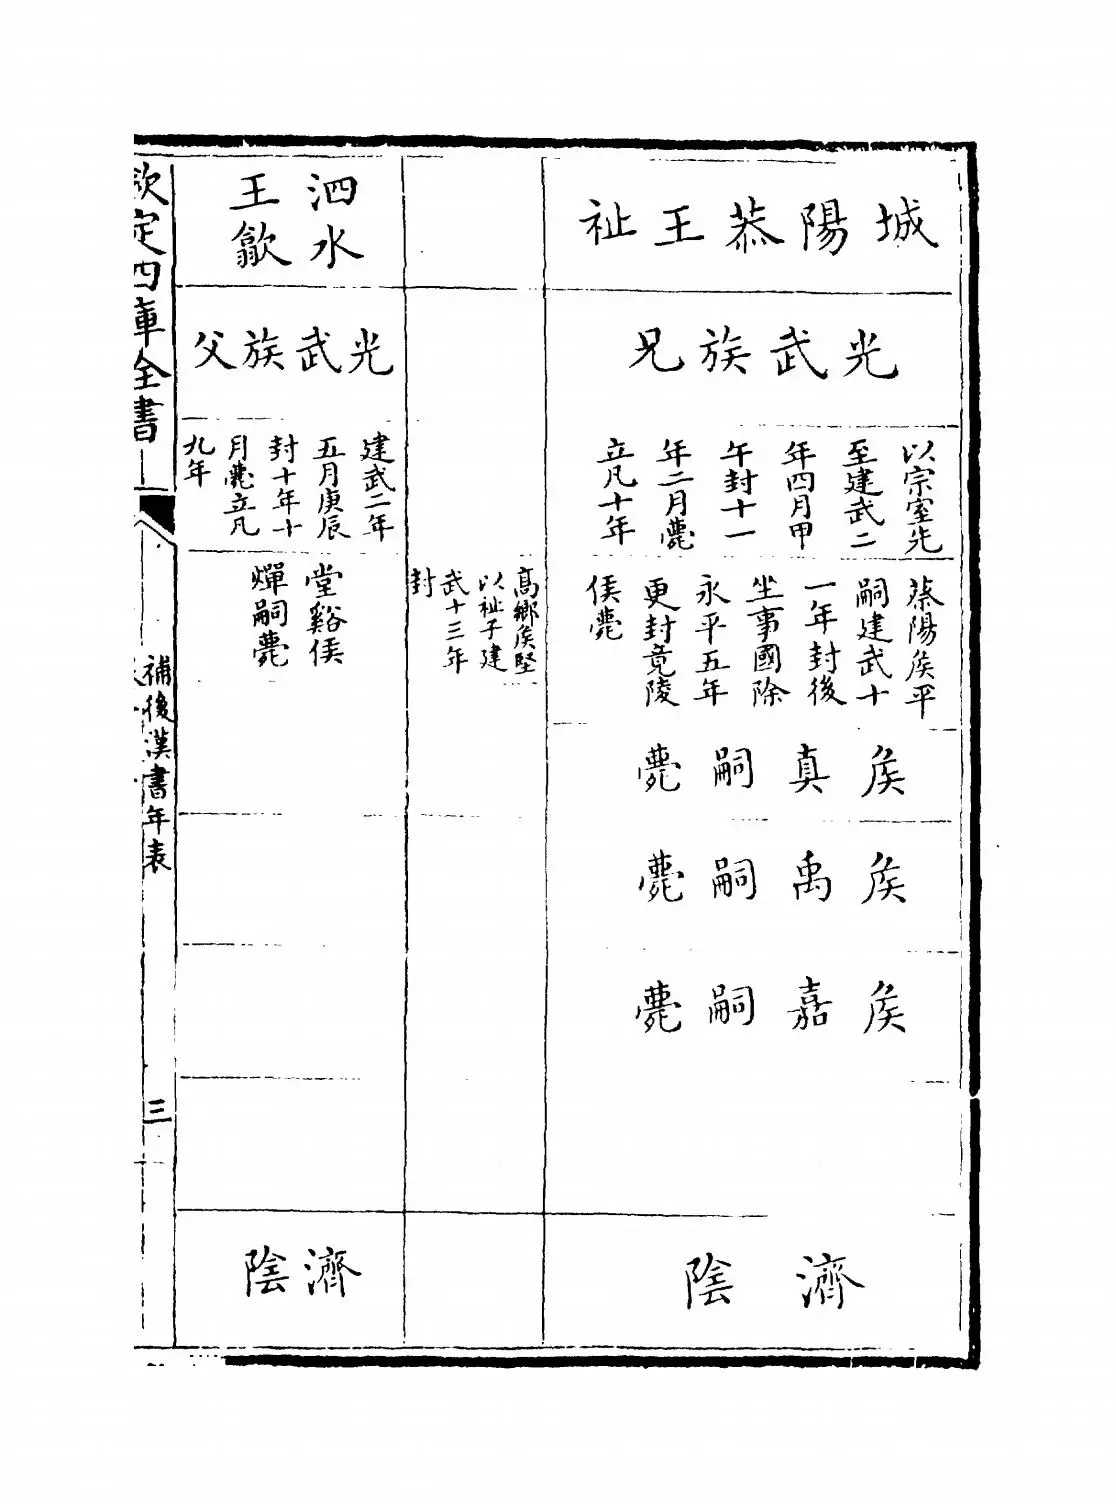 城陽恭王祉
光武族兄
以宗室先
至建武二
年四月甲
午封十一
年二月薨
立凡十年
蔡陽侯平
嗣建武十
一年封後
坐事國除
永平五年
更封竟陵
侯薨
侯真嗣薨
侯禹嗣薨
侯嘉嗣薨
濟陰
高鄉侯堅
以祉子建
武十三年
封
泗水
王歙
光武族父
建武二年
五月庚辰
封十年十
月薨立凡
九年
堂谿侯
燀嗣薨
濟陰
欽定四庫全書
補後漢書年表
三